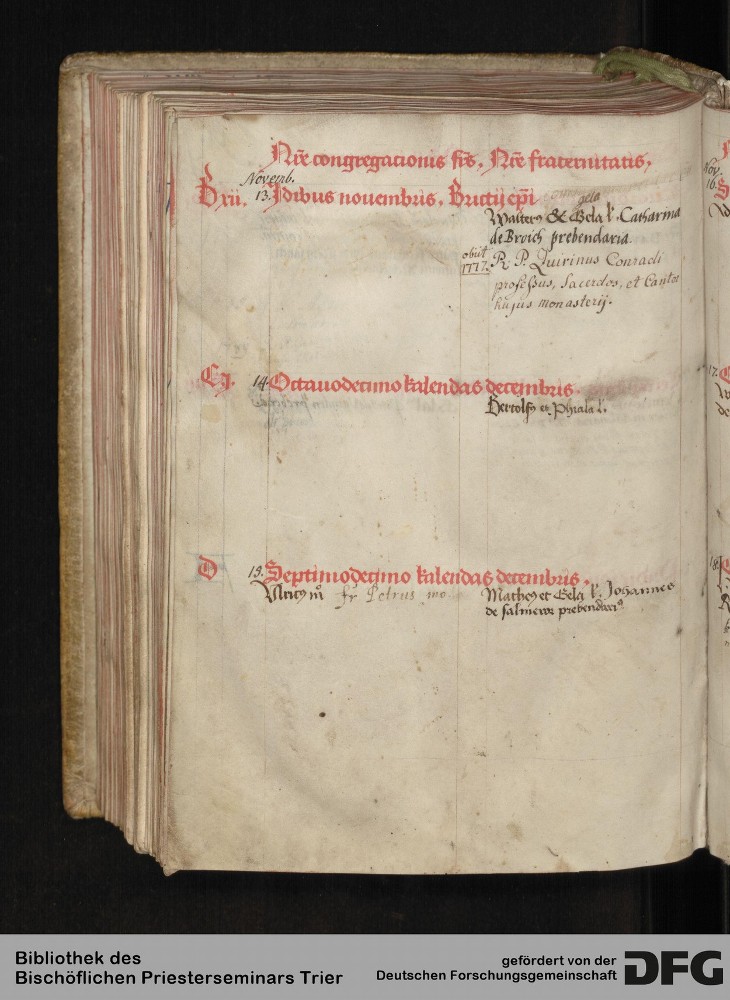 Nr̄e congregationis fr̄s. Nr̄e fraternitatis.
Novemb.
B xii. 13. Idibus nouembris. Brictij ep̄i
Walterꝰ & Gela l'. Catharina
de Broich prebendaria.
obiit 1777. R. P. Quirinus Conradi
professus, Sacerdos, et Cantor
hujus monasterij.
C j. 14. Octauodecimo kalendas decembris.
Bertolfꝰ et Phiala l'.
D 15. Septimodecimo kalendas decembris.
Vlricꝰ m̊ fr Petrus mo
Matheꝰ et Gela l'. Johannes
de prebendariꝰ
Nov.
16.
17.
18.
Bibliothek des
Bischöflichen Priesterseminars Trier
gefördert von der
Deutschen Forschungsgemeinschaft
DFG